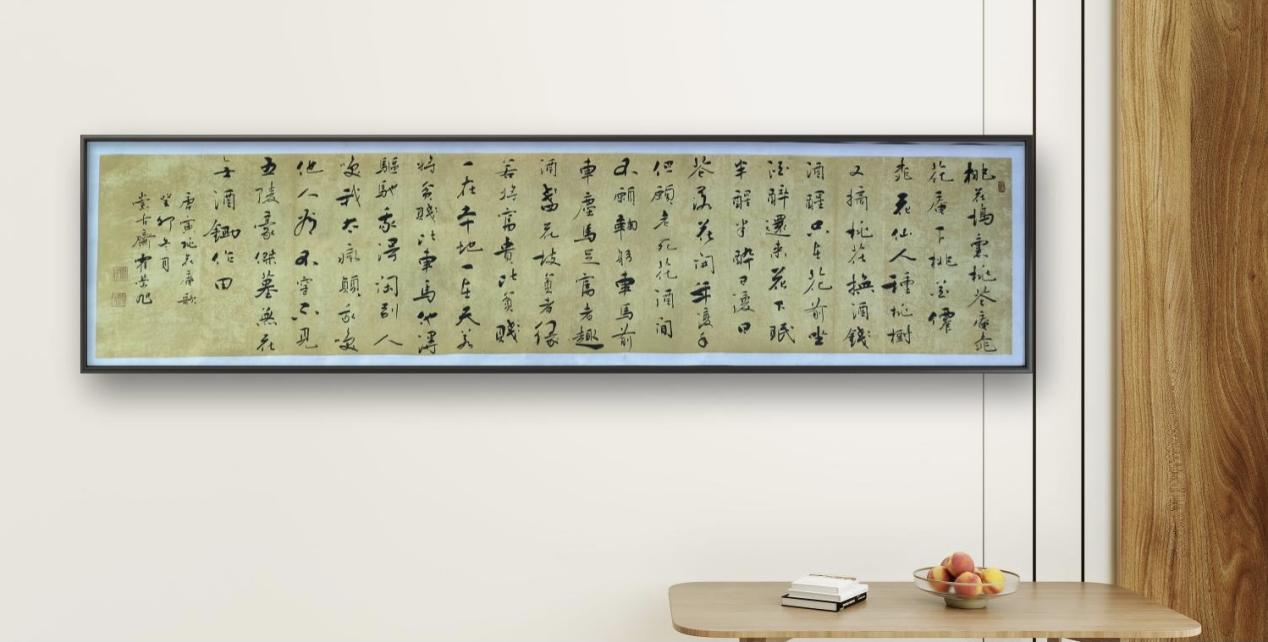 桃花塢裏桃花庵桃
花庵下桃花僊
桃花仙人種桃樹
又摘桃花換酒錢
酒醒只在花前坐
酒醉還來花下眠
半醒半醉日復日
花落花開年復年
但願老死花酒間
不願鞠躬車馬前
車塵馬足富者趣
酒盞花枝貧者緣
若將富貴比貧賤
一在平地一在天若
將貧賤比車馬他得
驅馳我得閑別人
笑我太瘋顛我笑
他人看不穿不見
五陵豪傑墓無花
無酒鋤作田
唐寅桃花庵歌
癸卯冬月
古齋